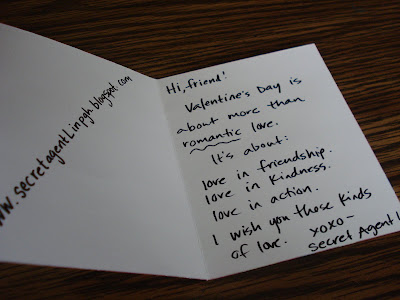 ww.secretagentLinpgh.blogspot.com
Hi, friend!
Valentine's Day is
about more than
romantic love.
It's about:
love in friendship.
love in kindness.
love in action.
I wish you those kinds
of love. xoxo-
Secret Agent L